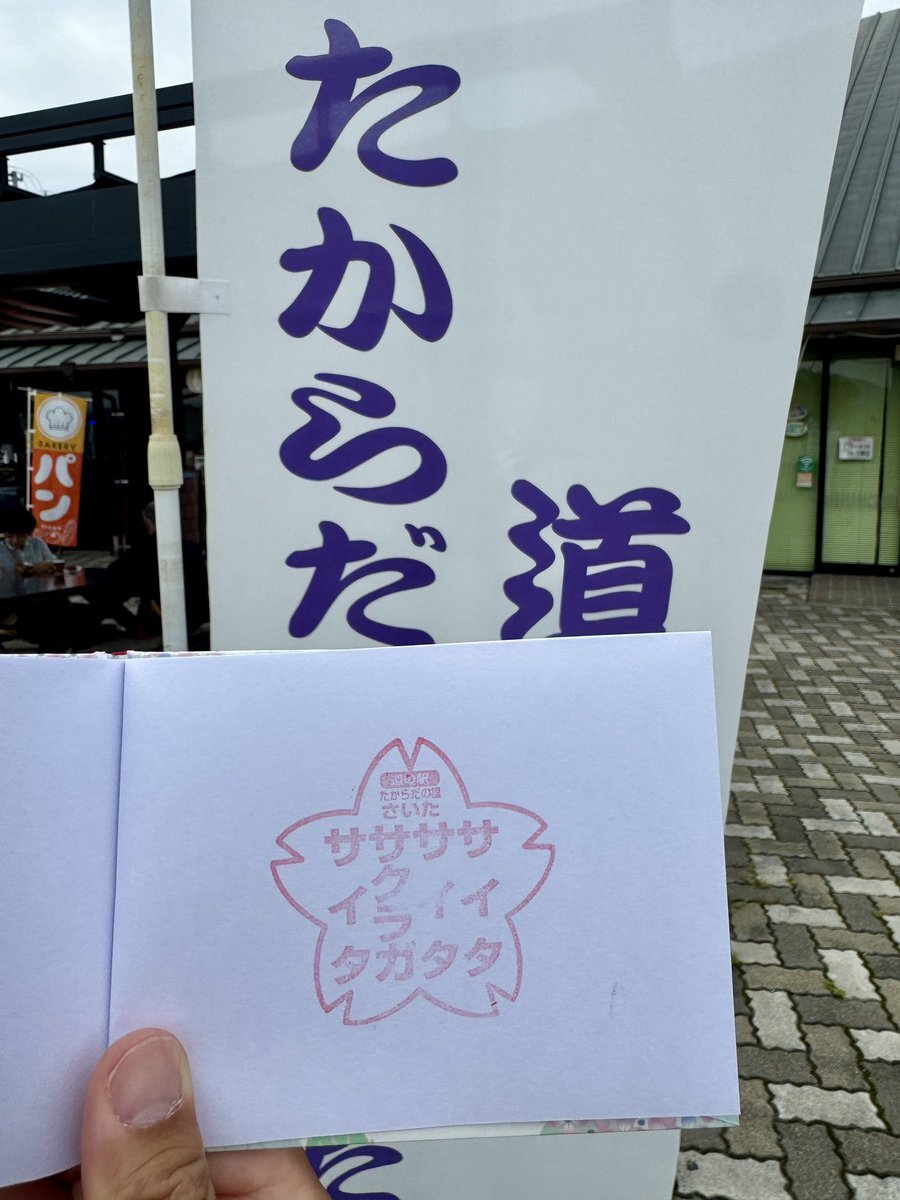 道
たからだ
BAKERY
パン
道の駅
たからだの里
さいた
サイタ
サイタ
サクラガ
サイタ